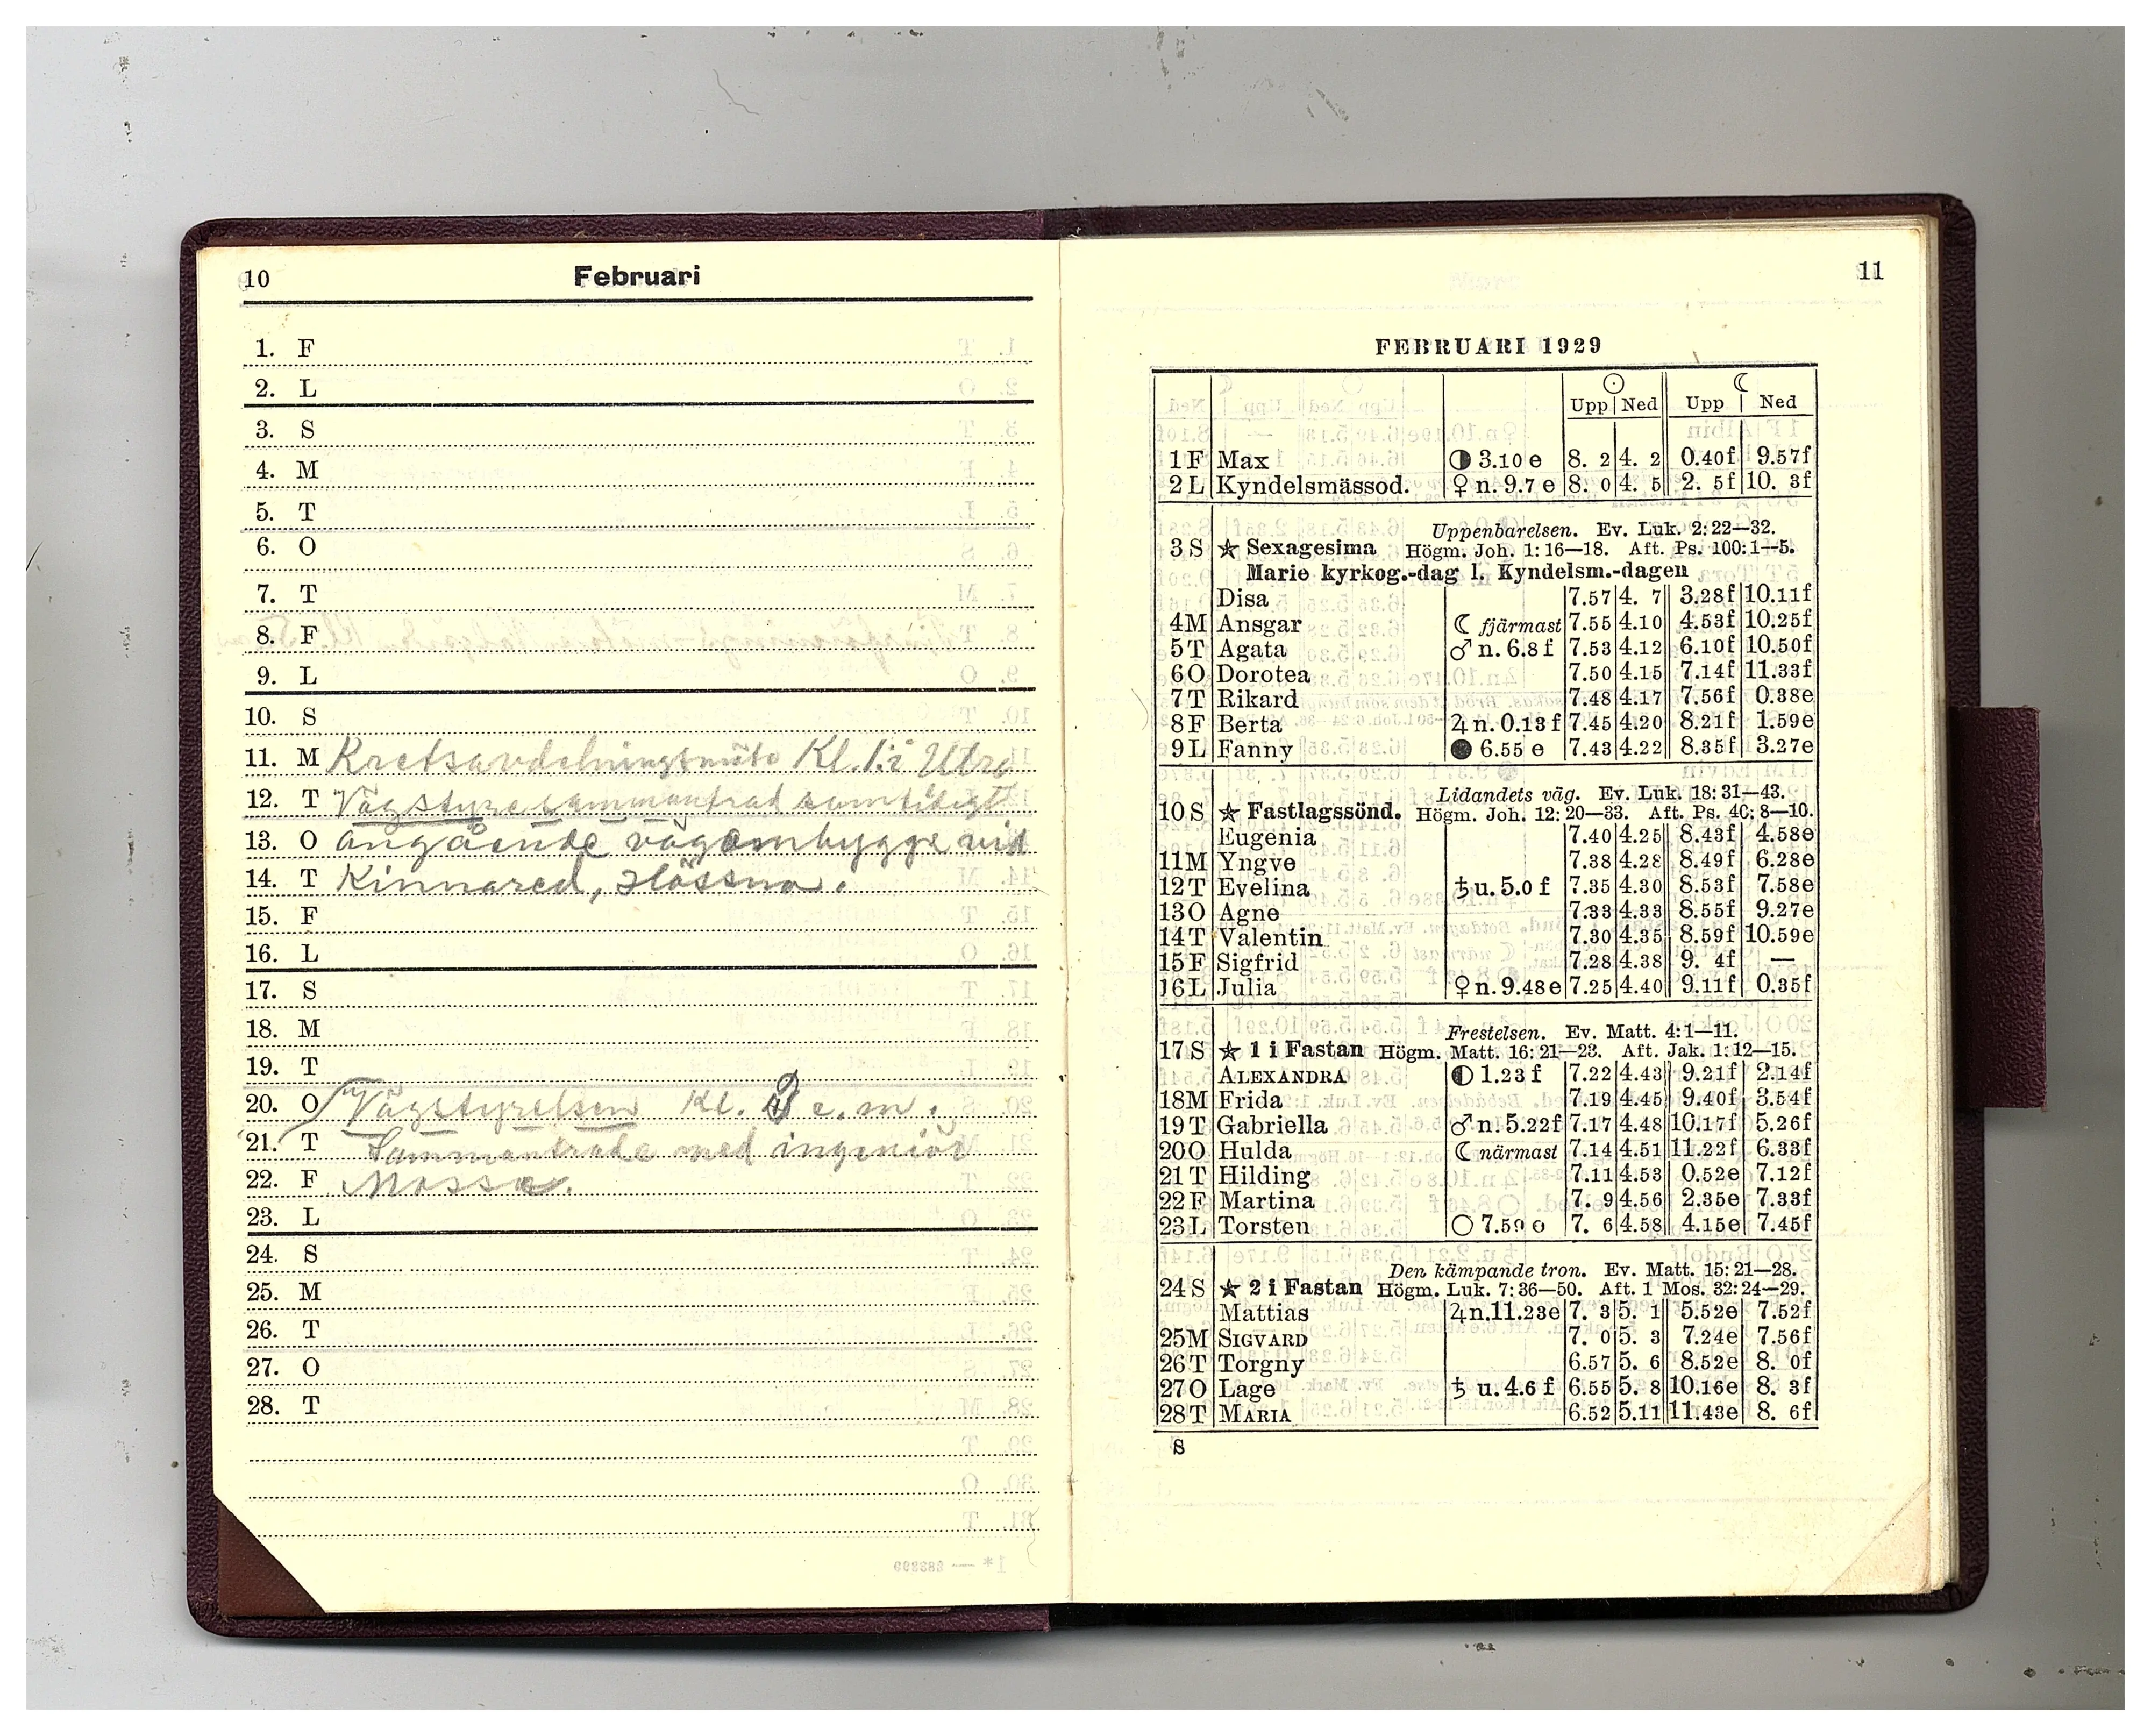 10 Februari
1. F
2. L
3. S
4. M
5. T
6. O
7. T
8. F
9. L
10. S
11. M Kretsavdelningsmöte Kl. 1. i Utra
12. T Vägstyresammanträd samtidigt
13. O angående vägombygge vid
14. T Kinnared, Hössna.
15. F
16. L
17. S
18. M
19. T
20. O Vägstyrelsen Kl. 3 e.m.
21. T Sammanträde med ingeniör
22. F Mossa.
23. L
24. S
25. M
26. T
27. O
28. T
11
FEBRUARI 1929
☉ ☾
Upp Ned Upp Ned
1 F Max ◑ 3.10 e 8. 2 4. 2 0.40f 9.57f
2 L Kyndelsmässod. ♀ n. 9.7 e 8. 0 4. 5 2. 5f 10. 3f
Uppenbarelsen. Ev. Luk. 2: 22—32.
3 S ★ Sexagesima Högm. Joh. 1: 16—18. Aft. Ps. 100: 1—5.
Marie kyrkog.-dag l. Kyndelsm.-dagen
Disa 7.57 4. 7 3.28f 10.11f
4 M Ansgar ☾ fjärmast 7.55 4.10 4.53f 10.25f
5 T Agata ♂ n. 6.8 f 7.53 4.12 6.10f 10.50f
6 O Dorotea 7.50 4.15 7.14f 11.33f
7 T Rikard 7.48 4.17 7.56f 0.38e
8 F Berta ♃ n. 0.13 f 7.45 4.20 8.21f 1.59e
9 L Fanny ● 6.55 e 7.43 4.22 8.35f 3.27e
Lidandets väg. Ev. Luk. 18: 31—43.
10 S ★ Fastlagssönd. Högm. Joh. 12: 20—33. Aft. Ps. 40: 8—10.
Eugenia 7.40 4.25 8.43f 4.58e
11 M Yngve 7.38 4.28 8.49f 6.28e
12 T Evelina ♄ u. 5.0 f 7.35 4.30 8.53f 7.58e
13 O Agne 7.33 4.33 8.55f 9.27e
14 T Valentin 7.30 4.35 8.59f 10.59e
15 F Sigfrid 7.28 4.38 9. 4f —
16 L Julia ♀ n. 9.48 e 7.25 4.40 9.11f 0.35f
Frestelsen. Ev. Matt. 4: 1—11.
17 S ★ 1 i Fastan Högm. Matt. 16: 21—23. Aft. Jak. 1: 12—15.
ALEXANDRA ◐ 1.23 f 7.22 4.43 9.21f 2.14f
18 M Frida 7.19 4.45 9.40f 3.54f
19 T Gabriella ♂ n. 5.22f 7.17 4.48 10.17f 5.26f
20 O Hulda ☾ närmast 7.14 4.51 11.22f 6.33f
21 T Hilding 7.11 4.53 0.52e 7.12f
22 F Martina 7. 9 4.56 2.35e 7.33f
23 L Torsten ○ 7.59 e 7. 6 4.58 4.15e 7.45f
Den kämpande tron. Ev. Matt. 15: 21—28.
24 S ★ 2 i Fastan Högm. Luk. 7: 36—50. Aft. 1 Mos. 32: 24—29.
Mattias ♃ n. 11.23e 7. 3 5. 1 5.52e 7.52f
25 M SIGVARD 7. 0 5. 3 7.24e 7.56f
26 T Torgny 6.57 5. 6 8.52e 8. 0f
27 O Lage ♄ u. 4.6 f 6.55 5. 8 10.16e 8. 3f
28 T MARIA 6.52 5.11 11.43e 8. 6f
S